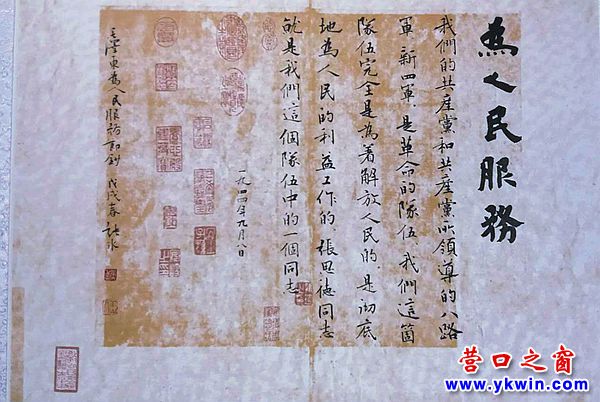 為人民服務
我們的共產黨和共產黨所領導的八路
軍、新四軍，是革命的隊伍、我們這箇
隊伍完全是為着解放人民的，是沏底
地為人民的利益工作的、張思德同志
就是我們這個隊伍中的一個同志
一九四四年九月八日
毛澤東為人民服務節鈔 戊戌春
营口之窗
www.ykwin.com